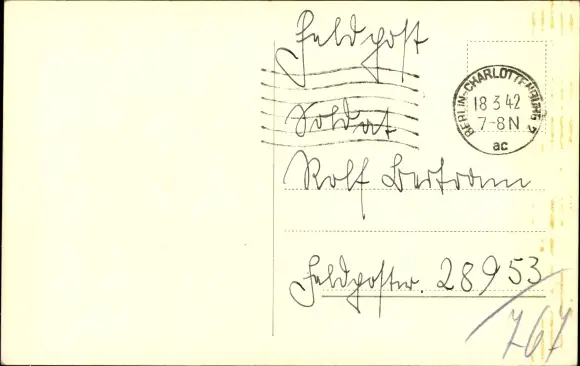 Feldpost
BERLIN-CHARLOTTENBURG 2
18 3.42
7-8N
ac
Soldat
Rolf Bertram
Feldpostnr. 28953
767